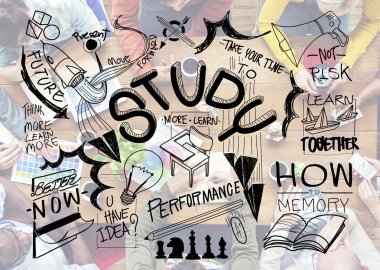 Present
FUTURE
MOVE
FORWARD
TAKE YOUR TIME
TO
STUDY
-NOT-
RISK
THINK
MORE
LEARN
MORE
MORE - LEARN
LEARN
TOGETHER
BETTER
NOW
U
HAVE
IDEA?
PERFORMANCE
HOW
TO
MEMORY